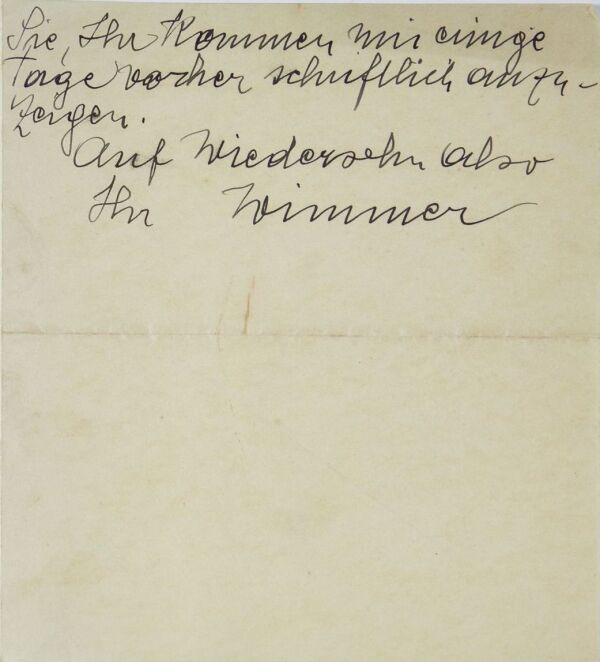 Sie, Ihr Kommen mir einige
Tage vorher schriftlich anzu-
zeigen.
Auf Wiedersehn also
Ihr Wimmer